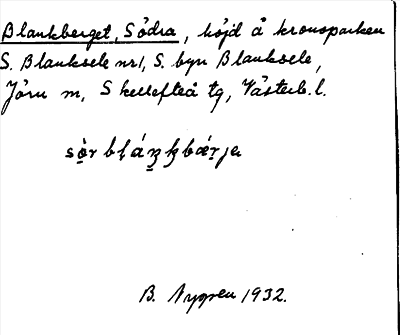 Blankberget, Södra, höjd å kronoparken
S. Blanksele nr 1, S. byn Blanksele,
Jörn m, Skellefteå tg, Västerb. l.
sö̀r blánkbǽrjə
B. Nygren 1932.